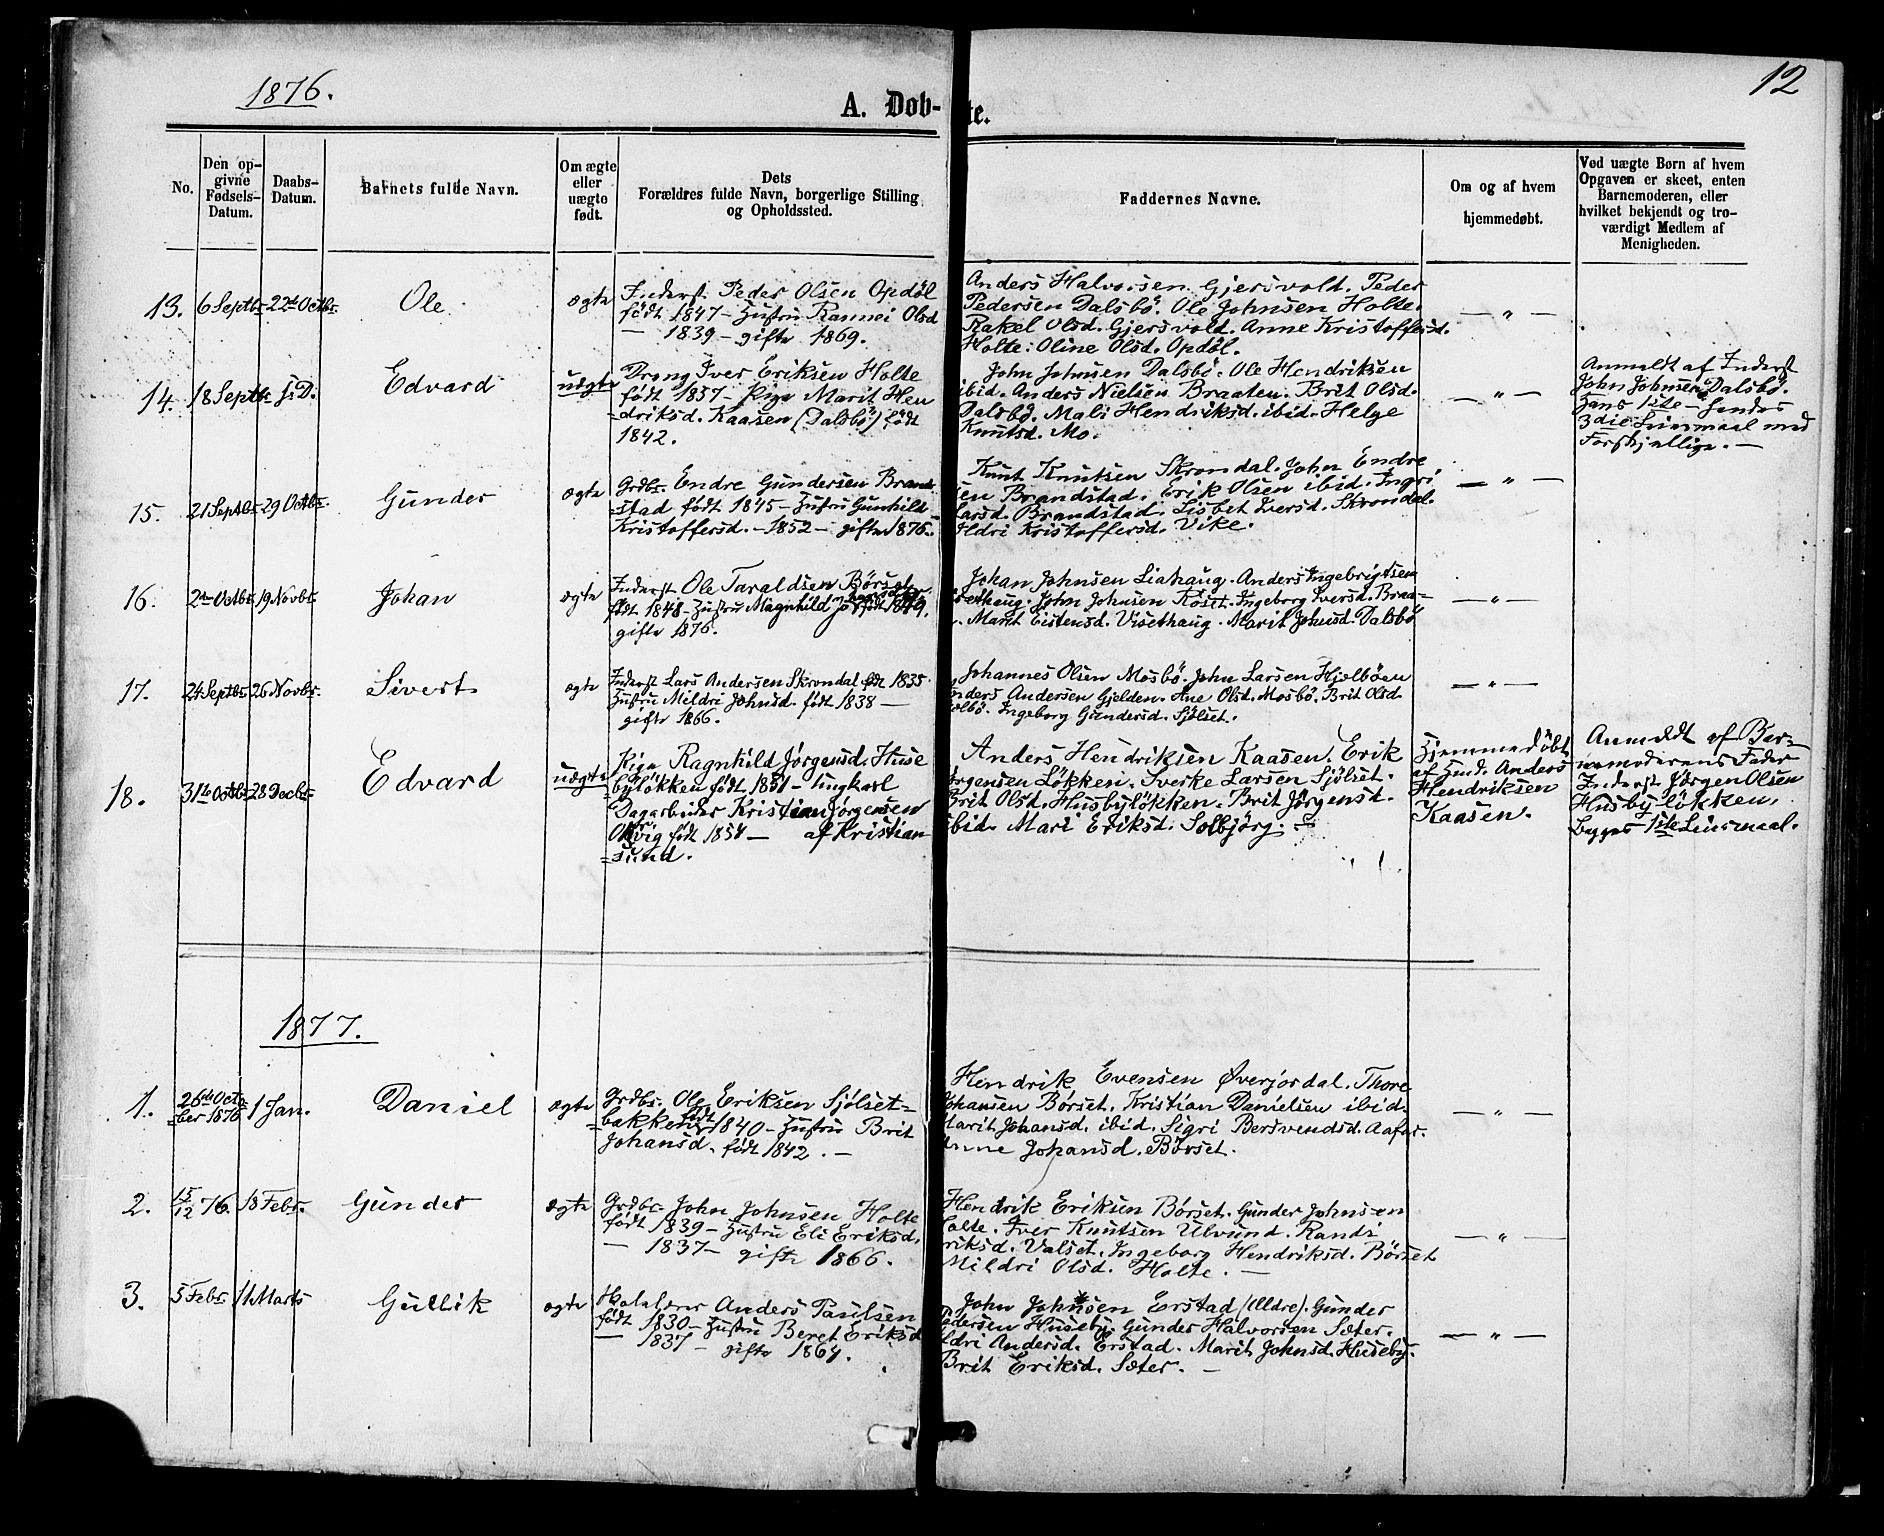 1876.
12
A. Døb-
te.
No.
Den op-
givne
Fødsels-
Datum.
Daabs-
Datum.
Barnets fulde Navn.
Om ægte
eller
uægte
født.
Dets
Forældres fulde Navn, borgerlige Stilling
og Opholdssted.
Faddernes Navne.
Om og af hvem
hjemmedøbt.
Ved uægte Børn af hvem
Opgaven er skeet, enten
Barnemoderen, eller
hvilket bekjendt og tro-
værdigt Medlem af
Menigheden.
13. 6 Septbr. 22de Octbr. Ole. ægte
Inderst Peder Olsen Opdøl
født 1847 - Hustru Rannei Olsd
— 1839 - gifte 1869.
Anders Halvorsen Gjersvold. Peder
Pedersen Dalsbø. Ole Johnsen Holte.
Rakel Olsd. Gjersvold. Anne Kristoffersd.
Holte: Oline Olsd. Opdøl.
— " —
14. 18 Septbr. s. D. Edvard uægte
Dreng Iver Eriksen Holte
født 1857 - Pige Marit Hen
=driksd. Kaasen (Dalsbø) født
1842.
John Johnsen Dalsbø. Ole Hendriksen
ibid. Anders Nielsen Braaten. Brit Olsd.
Dalsbø. Mali Hendriksd. ibid. Helge
Knutsd. Mo.
— " —
Anmeldt af Inderst
John Johnsen Dalsbø.
Hans 1ste - hendes
3die Leiermaal med
Forskjellige. —
15. 21 Septbr. 29 Octbr. Gunder ægte
Grdbr. Endre Gundersen Brand
=stad født 1845 - Hustru Gunhild
Kristoffersd. - 1852 - gifte 1876.
Knut Knutsen Skrondal. John Endre
sen Brandstad. Erik Olsen ibid. Ingri
Larsd. Brandstad. Lisbet Iversd. Skrondal.
Ildri Kristoffersd. Vike.
— " —
16. 2den Octbr. 19 Novbr. Johan ægte
Inderst Ole Taraldsen Børset
født 1848 - Hustru Magnhild født 1849,
gifte 1876.
Johan Johnsen Liahaug. Anders Ingebrigtsen
Visethaug. John Johnsen Røset. Ingeborg Iversd. Braa=
. Marit Eistensd. Visethaug. Marit Johnsd. Dalsbø
— " —
17. 24 Septbr. 26 Novbr. Sivert ægte
Inderst Lars Andersen Skrondal født 1835
Hustru Mildri Johnsd. født 1838 —
gifte 1866.
Johannes Olsen Mosbø. John Larsen Hjelbøen
Anders Andersen Gjelden. Ane Olsd. Mosbø. Brit Olsd
. Ingeborg Gundersd. Sjølset.
— " —
18. 31te Octbr. 28 Decbr. Edvard uægte
Pige Ragnhild Jørgensd. Huse
byløkken født 1851 - Ungkarl
Dagarbeider Kristian Jørgensen
født 1854 — af Kristian
=sund.
Anders Hendriksen Kaasen. Erik
Jørgensen Løkken. Sverke Larsen Sjølset.
Brit Olsd. Husbyløkken. Brit Jørgensd.
ibid. Mari Eriksd. Solbjørg. —
Hjemmedøbt
af Inderst Anders
Hendriksen
Kaasen.
Anmeldt af Bar-
nemoderens Fader
Inderst Jørgen Olsen
Husbyløkken,
begges 1ste Leiermaal.
1877.
1. 26de Octo
=ber 1876 1 Jan. Daniel ægte
Grdbr. Ole Eriksen Sjølset=
=bakken født 1840 - Hustru Brit
Johansd. født 1842. —
Hendrik Evensen Øverjordal. Thore
Johansen Børset. Kristian Danielsen ibid.
Marit Johansd. ibid. Sigri Bersvendsd. Aafar.
Anne Johansd. Børset.
— " —
2. 15/12 76. 18 Febr. Gunder ægte
Grdbr. John Johnsen Holte
født 1839 - Hustru Eli Eriksd.
— 1837 — gifte 1866.
Hendrik Eriksen Børset. Gunder Johnsen
Holte. Iver Knutsen Ulvund. Randi
Eriksd. Valset. Ingeborg Hendriksd. Børset
Mildri Olsd. Holte. —
— " —
3. 5 Febr. 11 Marts Gullik ægte
Anders Paulsen
født 1830 - Hustru Beret Eriksd
— 1837 — gifte 1864.
John Johnsen Erstad (Eldre). Gunder
Pedersen Huseby. Gunder Halvorsen Sæter.
Ildri Andersd. Erstad. Marit Johnsd. Huseby.
Brit Eriksd. Sæter. —
— " —